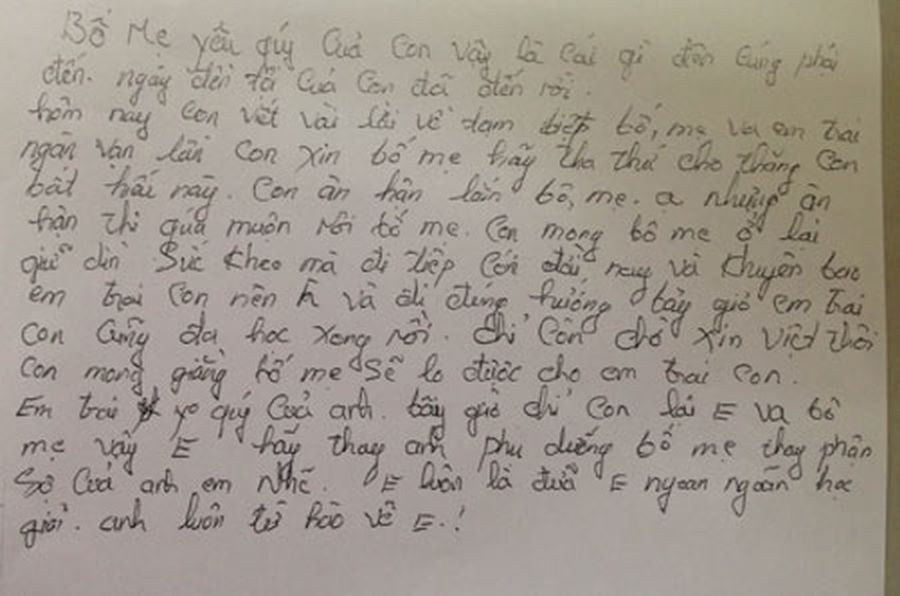 Bố Mẹ yêu qúy Cuả Con vậy là Cái gì đến Cúng phải
đến. ngáy đền tôi Cuả Con đã đến rồi.
hôm nay Con viết vài lời về tạm biệp bố, mẹ và em trai
ngàn vạn lần Con Xin bố mẹ hãy tha thứ cho thằng Con
bât hiếu này. Con ân hận lắm bố, mẹ. ạ nhưng ân
hận thì qúa muộn rồi bố mẹ. Con mong bố mẹ ở lại
giữ din Sức kheo mà đi tiếp Cới đời nay và khuyên bao
em trai Con nên và đi đúng hướng bây giờ em trai
Con Cũng đa học Xong rồi. chỉ Còn chờ Xin Việt thôi
Con mong giằng bố mẹ Sẽ lo được cho em trai Con.
Em trai yo quý Cuả anh. bây giờ chỉ Con lại E va bố
mẹ vậy E hãy thay anh phụ dưỡng bố mẹ thay phận
Số Cuả anh em Nhé. E luôn là đứa E ngoan ngoãn học
giỏi. anh luôn tự hào về E.!